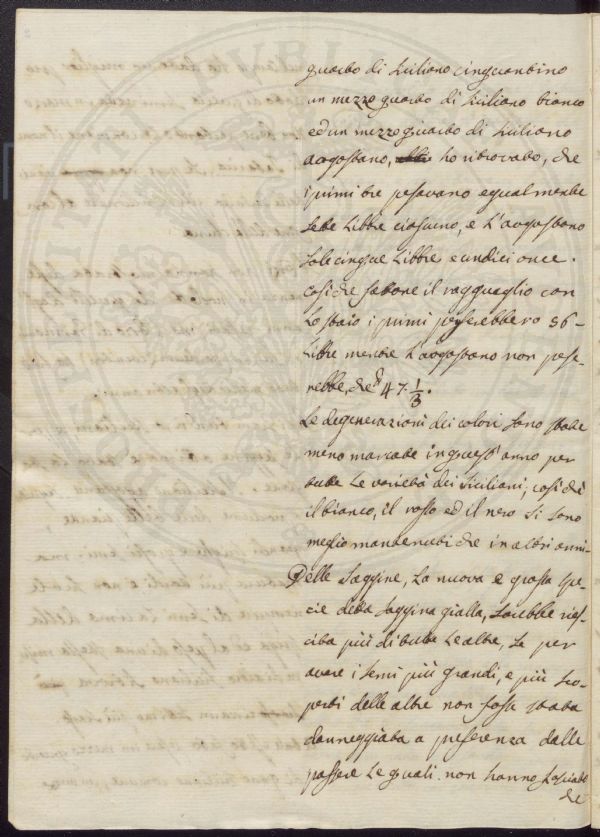 quarto di siciliano cinquantino
un mezzo quarto di siciliano bianco
ed un mezzo quarto di siciliano
agostano, ho ritrovato, che
i primi tre pesavano egualmente
sette libbre ciascuno, e l'agostano
sole cinque libbre e undici once.
Cosiche fattone il ragguaglio con
lo staio i primi peserebbero 56
libbre mentre l'agostano non pese-
rebbe, che 47 1/3.
Le degenerazioni dei colori sono state
meno marcate in quest'anno per
tutte le varietà dei siciliani; cosichè
il bianco, il rosso ed il nero si sono
meglio mantenuti che in altri anni.
Delle saggine, la nuova e grossa spe-
cie detta saggina gialla, sarebbe ries-
cita più di tutte le altre, se per
avere i semi più grandi, e più sco-
perti delle altre non fosse stata
danneggiata a preferenza dalle
passere le quali non hanno lasciato
che